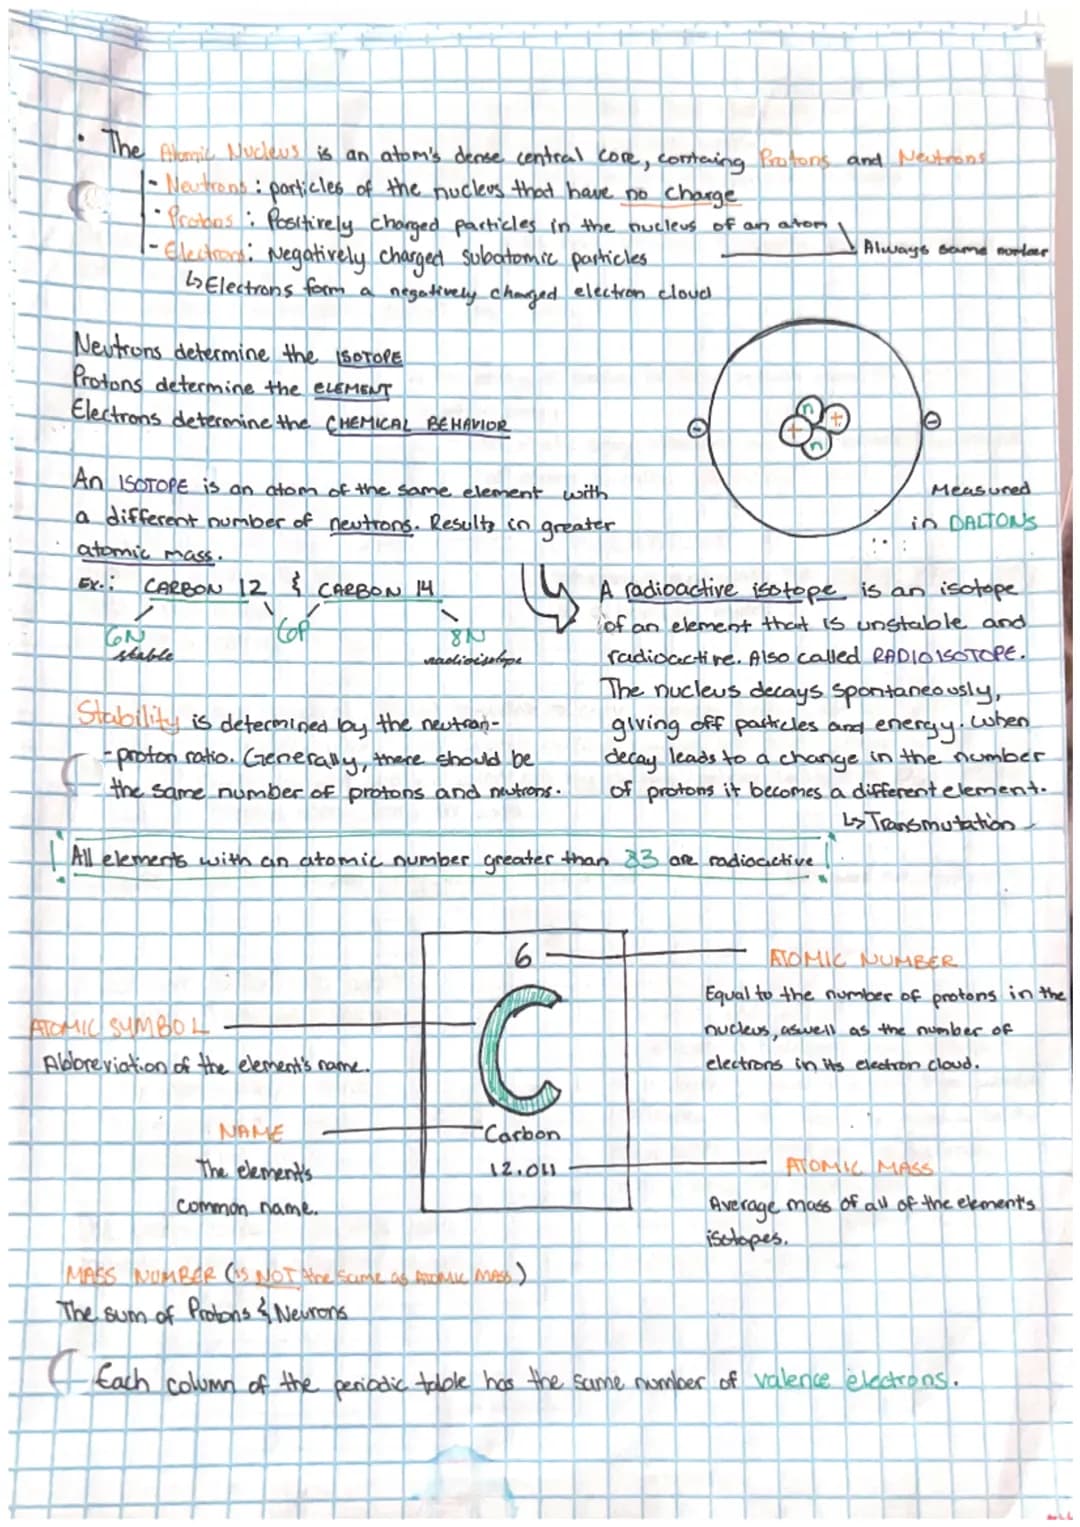 • The Atomic Nucleus is an atom's dense central core, containg Protons and Neutrons
- Neutrons: particles of the nucleus that have no charge
- Protons: Positively charged particles in the nucleus of an atom
- Electrons: Negatively charged subatomic particles
Always same number
↳ Electrons form a negatively charged electron cloud
Neutrons determine the ISOTOPE
Protons determine the ELEMENT
Electrons determine the CHEMICAL BEHAVIOR
n +
+ n
- -
An ISOTOPE is an atom of the same element with
a different number of neutrons. Results in greater
atomic mass.
Measured
in DALTONS
Ex.: CARBON 12 & CARBON 14
6N 6P 8N
stable radioisotope
A radioactive isotope is an isotope
of an element that is unstable and
radioactive. Also called RADIOISOTOPE.
The nucleus decays spontaneously,
giving off particles and energy. When
decay leads to a change in the number
of protons it becomes a different element.
↳ Transmutation
Stability is determined by the neutron-
-proton ratio. Generally, there should be
the same number of protons and neutrons.
! All elements with an atomic number greater than 83 are radioactive !
6
ATOMIC NUMBER
Equal to the number of protons in the
nucleus, aswell as the number of
electrons in its electron cloud.
C
ATOMIC SYMBOL
Abbreviation of the element's name.
NAME
The element's
common name.
Carbon
12.011
ATOMIC MASS
Average mass of all of the element's
isotopes.
MASS NUMBER (IS NOT the same as ATOMIC MASS)
The sum of Protons & Neurons
Each column of the periodic table has the same number of valence electrons.